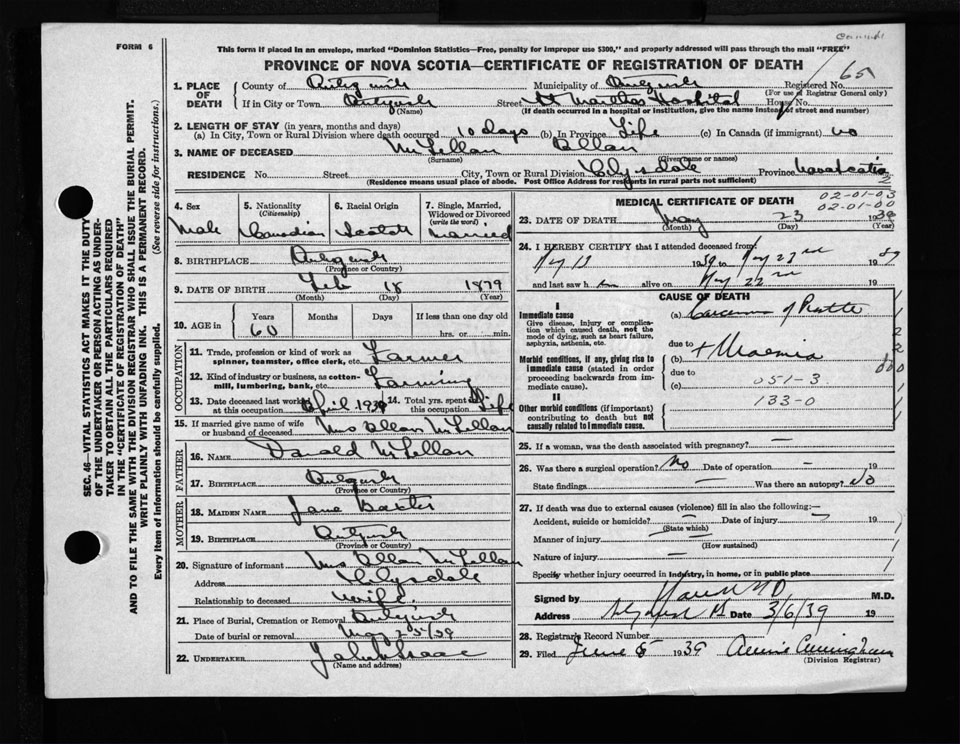 FORM 6
This form if placed in an envelope, marked "Dominion Statistics—Free, penalty for improper use $300," and properly addressed will pass through the mail "FREE"
PROVINCE OF NOVA SCOTIA—CERTIFICATE OF REGISTRATION OF DEATH
65
1. PLACE OF DEATH
County of Antigonish Municipality of Antigonish Registered No.
(For use of Registrar General only)
If in City or Town Antigonish Street St Marthas Hospital House No.
(Name) (If death occurred in a hospital or institution, give the name instead of street and number)
2. LENGTH OF STAY (in years, months and days)
(a) In City, Town or Rural Division where death occurred 10 days (b) In Province Life (c) In Canada (if immigrant) no
3. NAME OF DECEASED McLellan Allan
(Surname) (Given name or names)
RESIDENCE No. Street City, Town or Rural Division Clydesdale Province Nova Scotia
(Residence means usual place of abode. Post Office Address for residents in rural parts not sufficient)
4. Sex
Male
5. Nationality
(Citizenship)
Canadian
6. Racial Origin
Scotch
7. Single, Married, Widowed or Divorced
(write the word)
Married
8. BIRTHPLACE Antigonish
(Province or Country)
9. DATE OF BIRTH Feb 18 1879
(Month) (Day) (Year)
10. AGE in
Years Months Days If less than one day old
60 hrs. or min.
OCCUPATION
11. Trade, profession or kind of work as spinner, teamster, office clerk, etc. Farmer
12. Kind of industry or business, as cotton-mill, lumbering, bank, etc. Farming
13. Date deceased last worked at this occupation April 1939
14. Total yrs. spent at this occupation Life
15. If married give name of wife or husband of deceased Mrs Allan McLellan
FATHER
16. NAME Donald McLellan
17. BIRTHPLACE Antigonish
(Province or Country)
MOTHER
18. MAIDEN NAME Jane Baxter
19. BIRTHPLACE Antigonish
(Province or Country)
20. Signature of informant Mrs Allan McLellan
Address Clydesdale
Relationship to deceased wife
21. Place of Burial, Cremation or Removal Antigonish
Date of burial or removal May 25/39
22. UNDERTAKER John Isaac
(Name and address)
MEDICAL CERTIFICATE OF DEATH
02-01-03
02-01-00
23. DATE OF DEATH May 23 1939
(Month) (Day) (Year)
24. I HEREBY CERTIFY that I attended deceased from:
May 13 1939 to May 23rd 1939
and last saw him alive on May 22nd
CAUSE OF DEATH
I
Immediate cause
Give disease, injury or complication which caused death, not the mode of dying, such as heart failure, asphyxia, asthenia, etc.
(a) Carcinoma of
due to
Morbid conditions, if any, giving rise to immediate cause (stated in order proceeding backwards from immediate cause).
(b) + Uraemia
due to
(c) 051-3
133-0
II
Other morbid conditions (if important) contributing to death but not causally related to immediate cause.
25. If a woman, was the death associated with pregnancy? —
26. Was there a surgical operation? No Date of operation — 19
State findings — Was there an autopsy? No
27. If death was due to external causes (violence) fill in also the following:—
Accident, suicide or homicide? — Date of injury — 19
(State which)
Manner of injury —
(How sustained)
Nature of injury —
Specify whether injury occurred in industry, in home, or in public place
Signed by M.D.
Address Date 3/6/39 19
28. Registrar's Record Number
29. Filed June 6 1939 Annie Cunningham
(Division Registrar)
SEC. 46—VITAL STATISTICS ACT MAKES IT THE DUTY
OF THE UNDERTAKER OR PERSON ACTING AS UNDERTAKER TO OBTAIN ALL THE PARTICULARS REQUIRED
IN THE "CERTIFICATE OF REGISTRATION OF DEATH"
AND TO FILE THE SAME WITH THE DIVISION REGISTRAR WHO SHALL ISSUE THE BURIAL PERMIT.
WRITE PLAINLY WITH UNFADING INK. THIS IS A PERMANENT RECORD.
Every item of information should be carefully supplied. (See reverse side for instructions.)